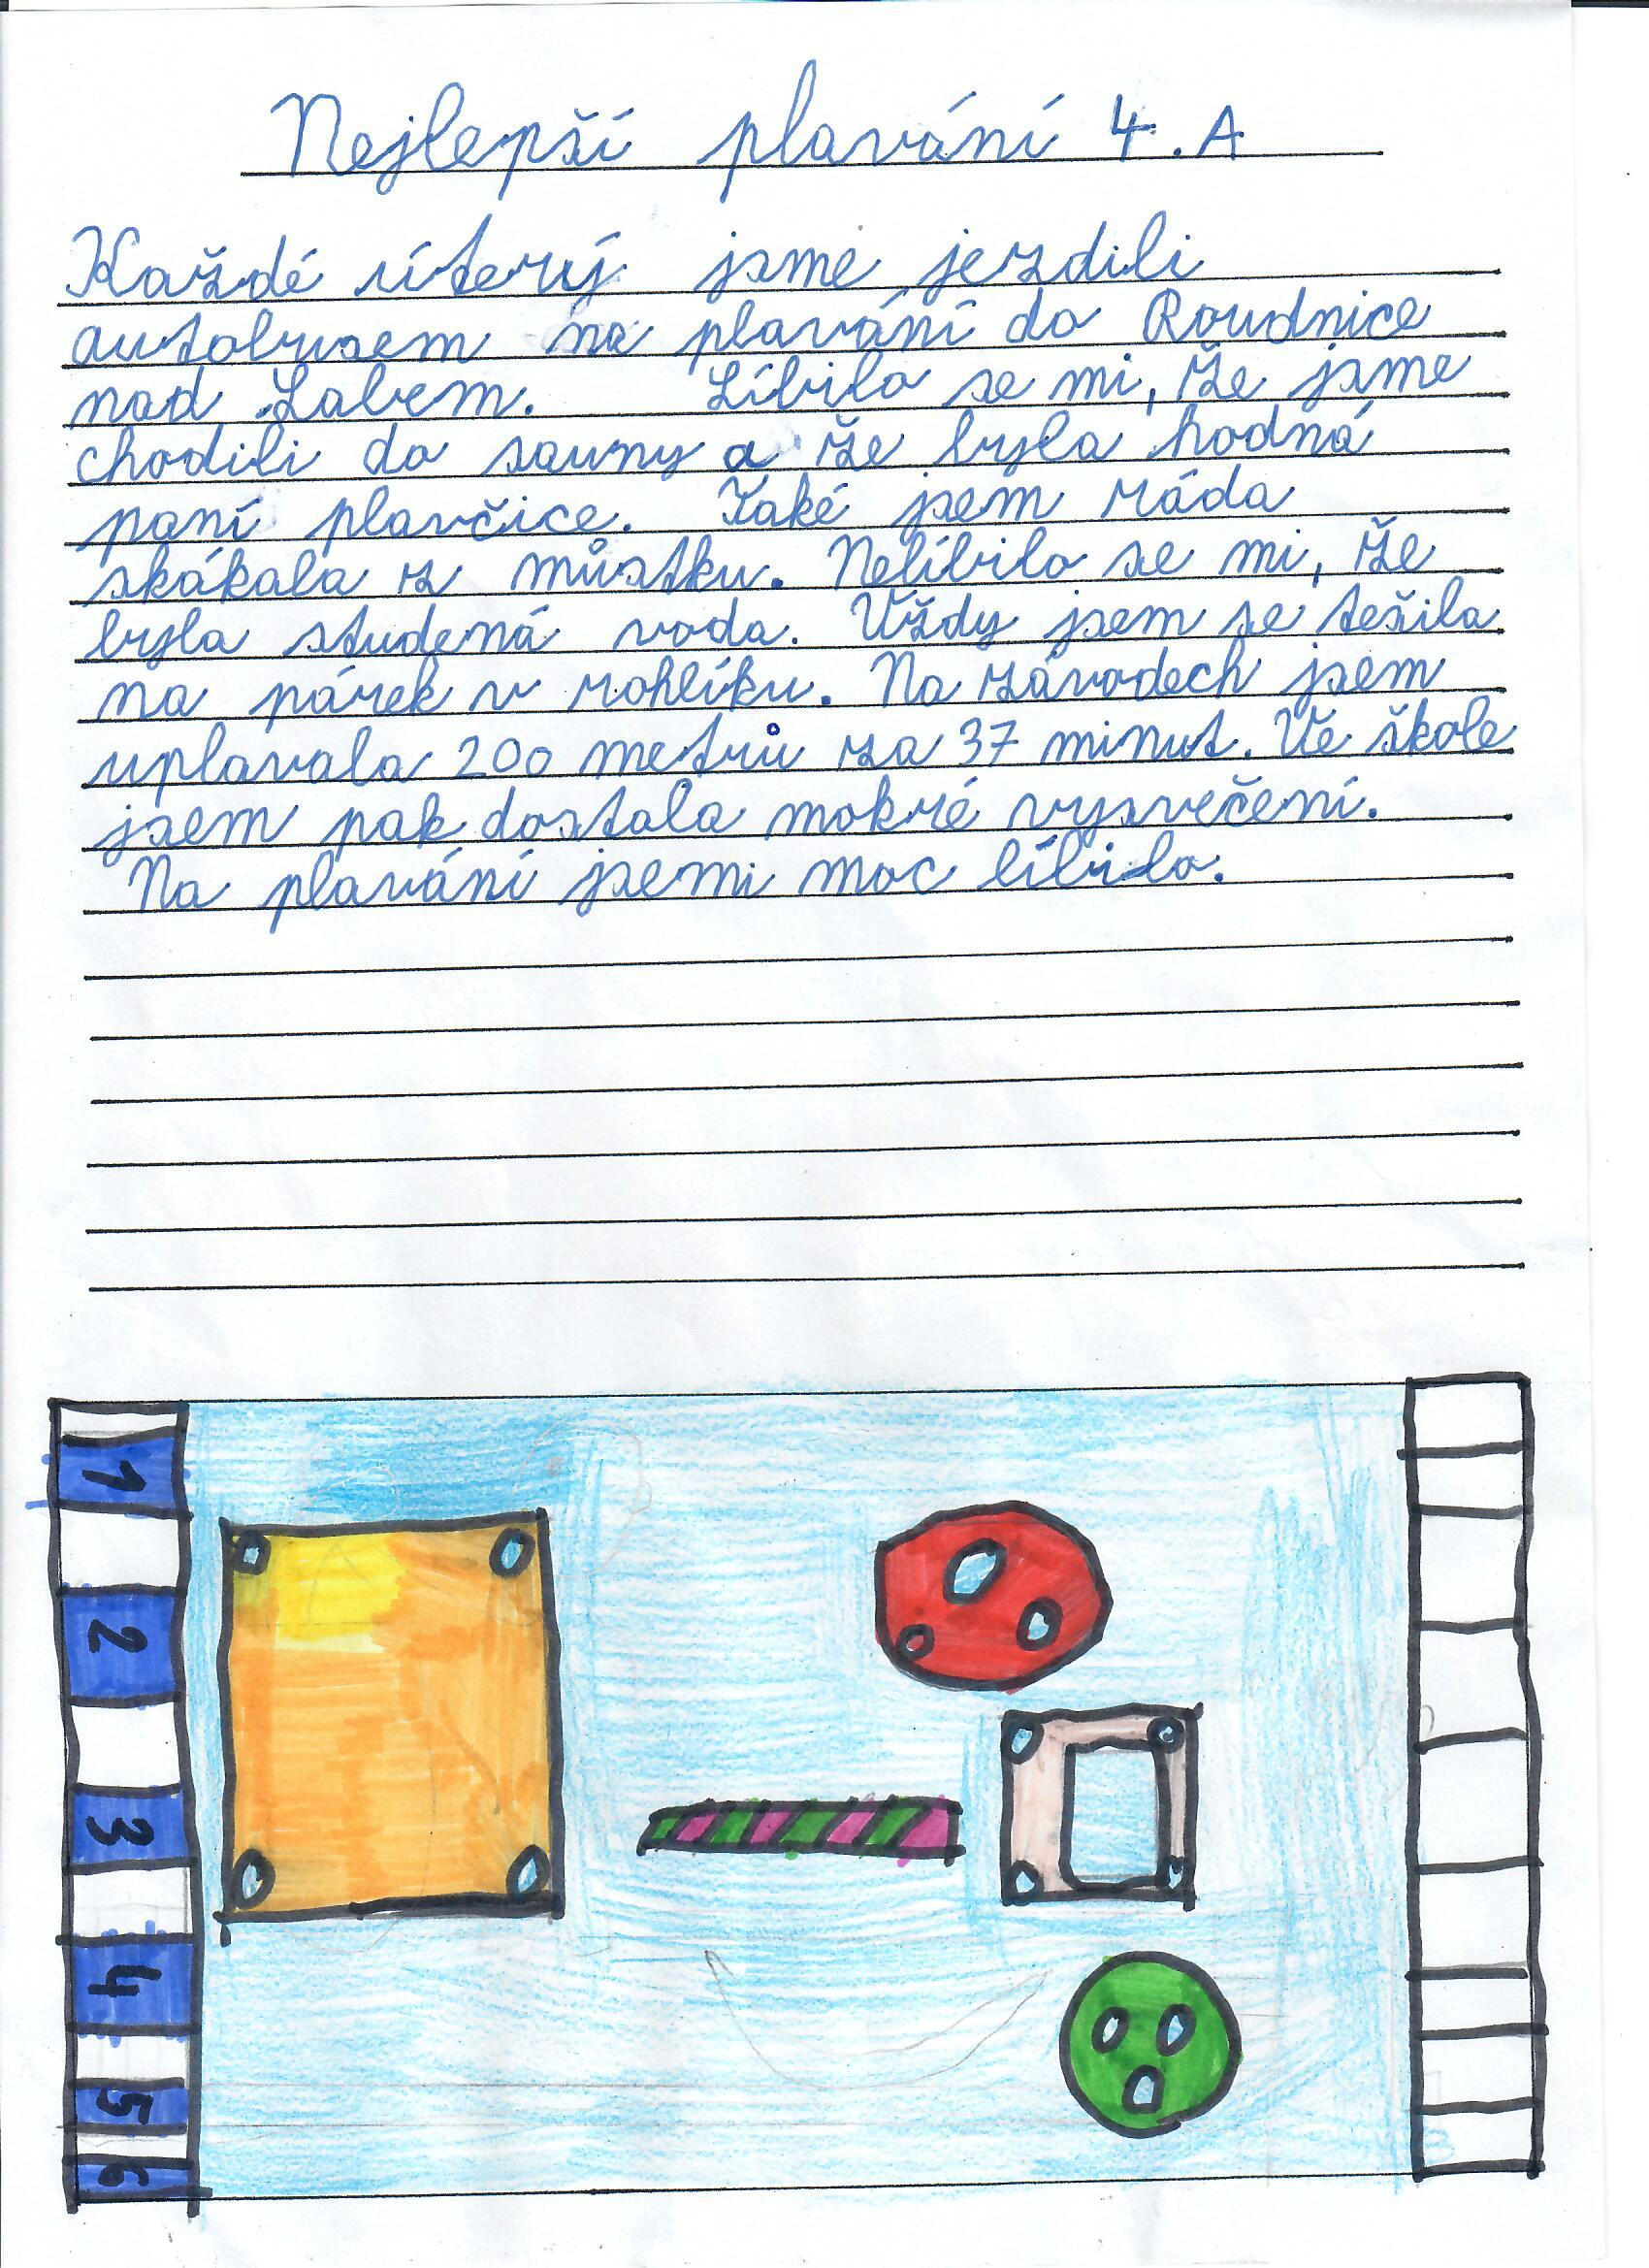 Nejlepší plavání 4.A
Každé úterý jsme jezdili
autobusem na plavání do Roudnice
nad Labem. Líbilo se mi, že jsme
chodili do sauny a že byla hodná
paní plavčice. Také jsem ráda
skákala z můstku. Nelíbilo se mi, že
byla studená voda. Vždy jsem se tešila
na párek v rohlíku. Na závodech jsem
uplavala 200 metrů za 37 minut. Vě škole
jsem pak dostala mokré vysvečení.
Na plavání jsemi moc líbilo.
1
2
3
4
5
6